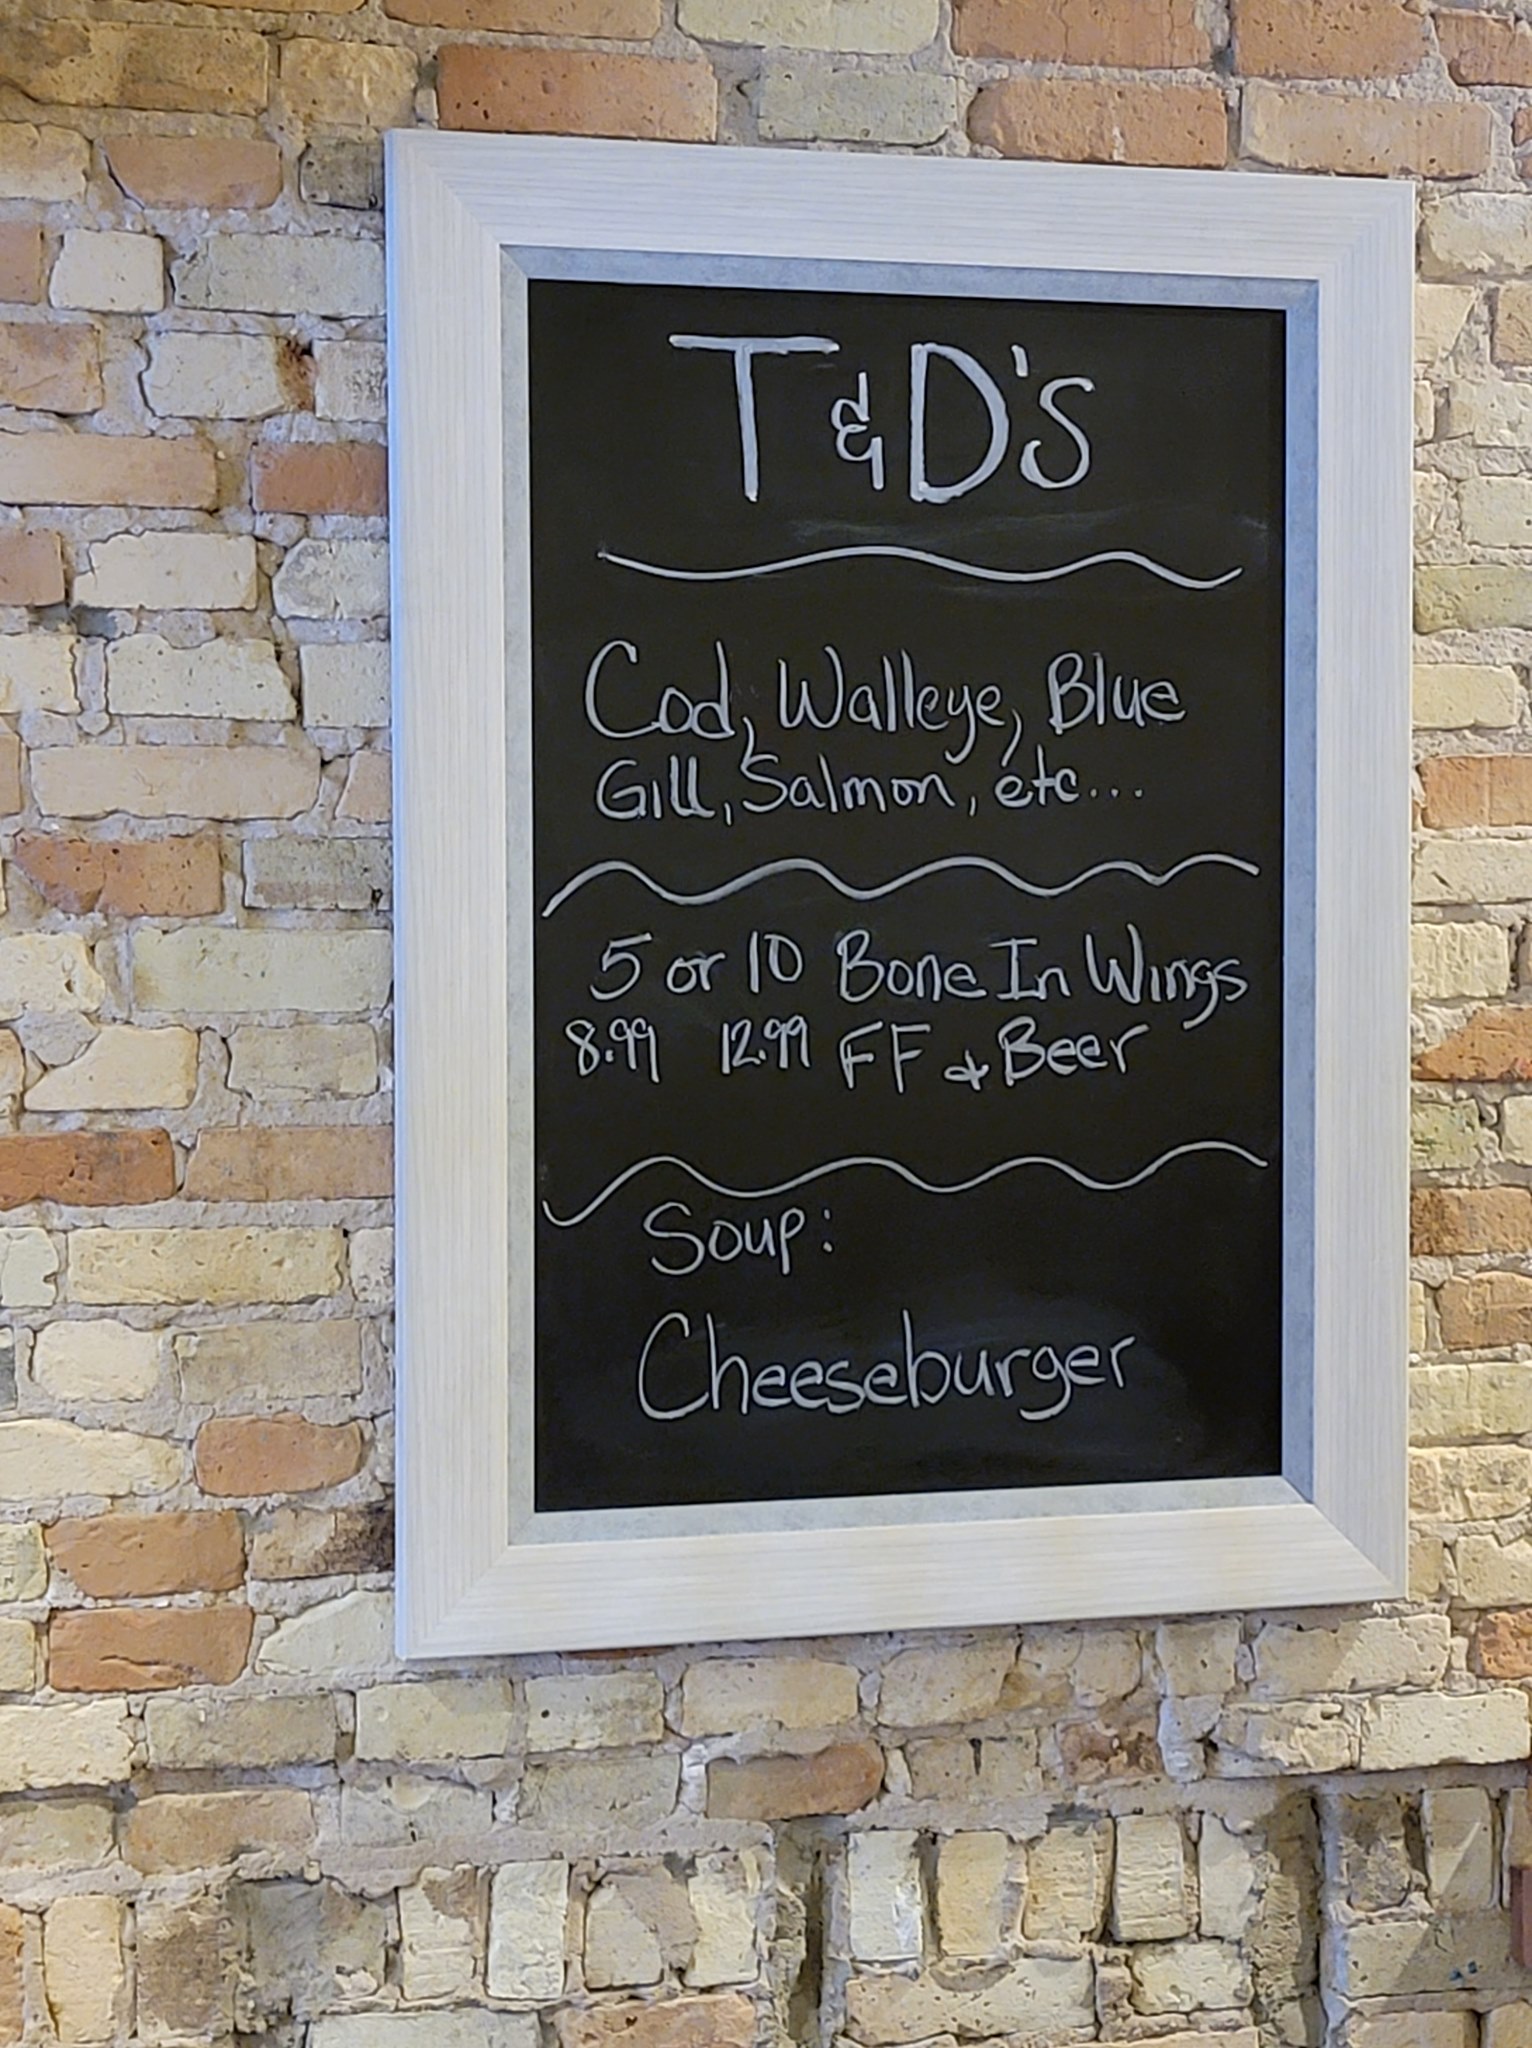 T & D's
Cod, Walleye, Blue
Gill, Salmon, etc...
5 or 10 Bone In Wings
8.99 12.99 FF & Beer
Soup:
Cheeseburger